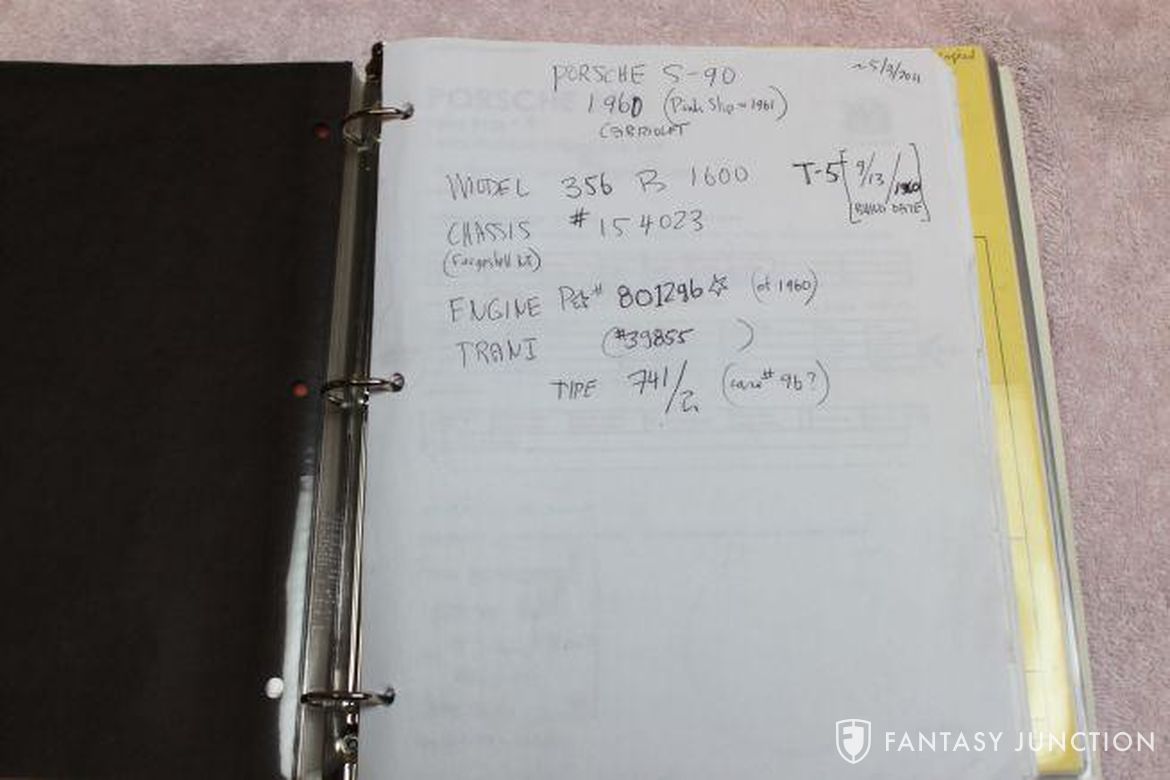 PORSCHE S-90
~5/9/2011
1960 (Pink Slip = 1961)
CABRIOLET
MODEL 356 B 1600 T-5 [9/13/1960
[BUILD DATE]
CHASSIS # 154023
ENGINE # 801296 (of 1960)
TRANS (#39855 )
TYPE 741/2 (case# 96?)
FANTASY JUNCTION